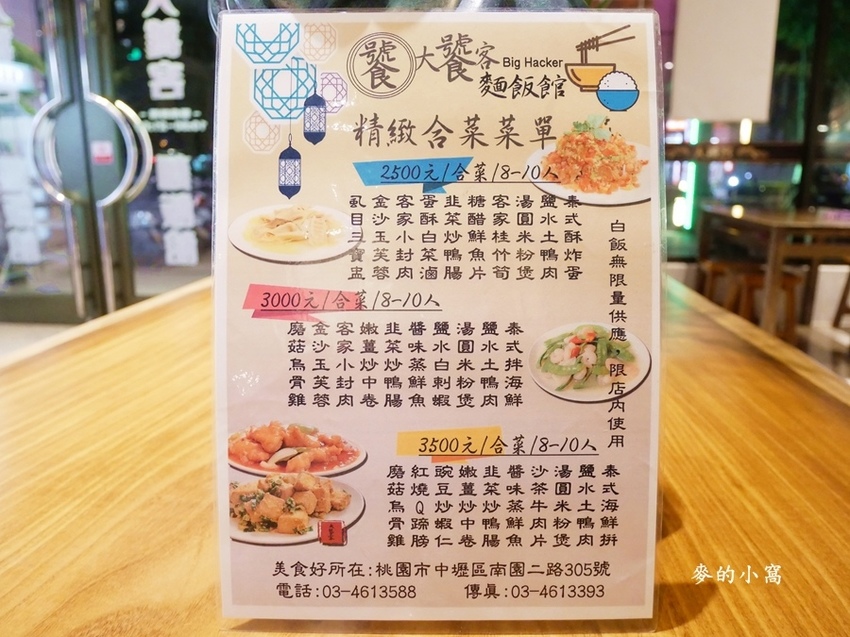 饕
大饕客
Big Hacker
麵飯館
精緻合菜菜單
2500元/合菜/8-10人
泰式酥炸蛋
鹽水土鴨肉
湯圓米粉煲
客家桂竹筍
糖醋鮮魚片
韭菜炒鴨腸
蛋酥白菜滷
客家小封肉
金沙玉芙蓉
虱目三寶盅
白飯無限量供應 限店內使用
3000元/合菜/8-10人
泰式拌海鮮
鹽水土鴨肉
湯圓米粉煲
鹽水白刺蝦
醬味蒸鮮魚
韭菜炒鴨腸
嫩薑炒中卷
客家小封肉
金沙玉芙蓉
磨菇烏骨雞
3500元/合菜/8-10人
泰式海鮮拼
鹽水土鴨肉
湯圓米粉煲
沙茶牛肉片
醬味蒸鮮魚
韭菜炒鴨腸
嫩薑炒中卷
豌豆炒蝦仁
紅燒Q蹄膀
磨菇烏骨雞
美食好所在:桃園市中壢區南園二路305號
電話:03-4613588 傳真:03-4613393
麥的小窩